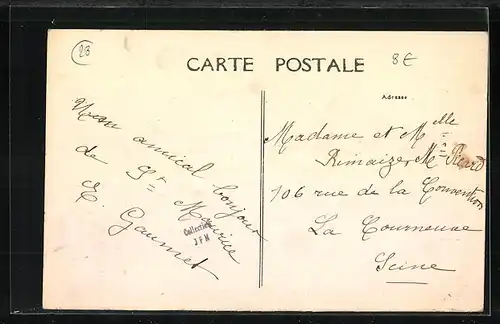 23
CARTE POSTALE
8€
Adresse
Mon amical bonjour
de St Maurice
E. Gaumet
Collection
JFM
Madame et Melle
Rimaize, Mr Picard
106 rue de la Convention
La Courneuve
Seine